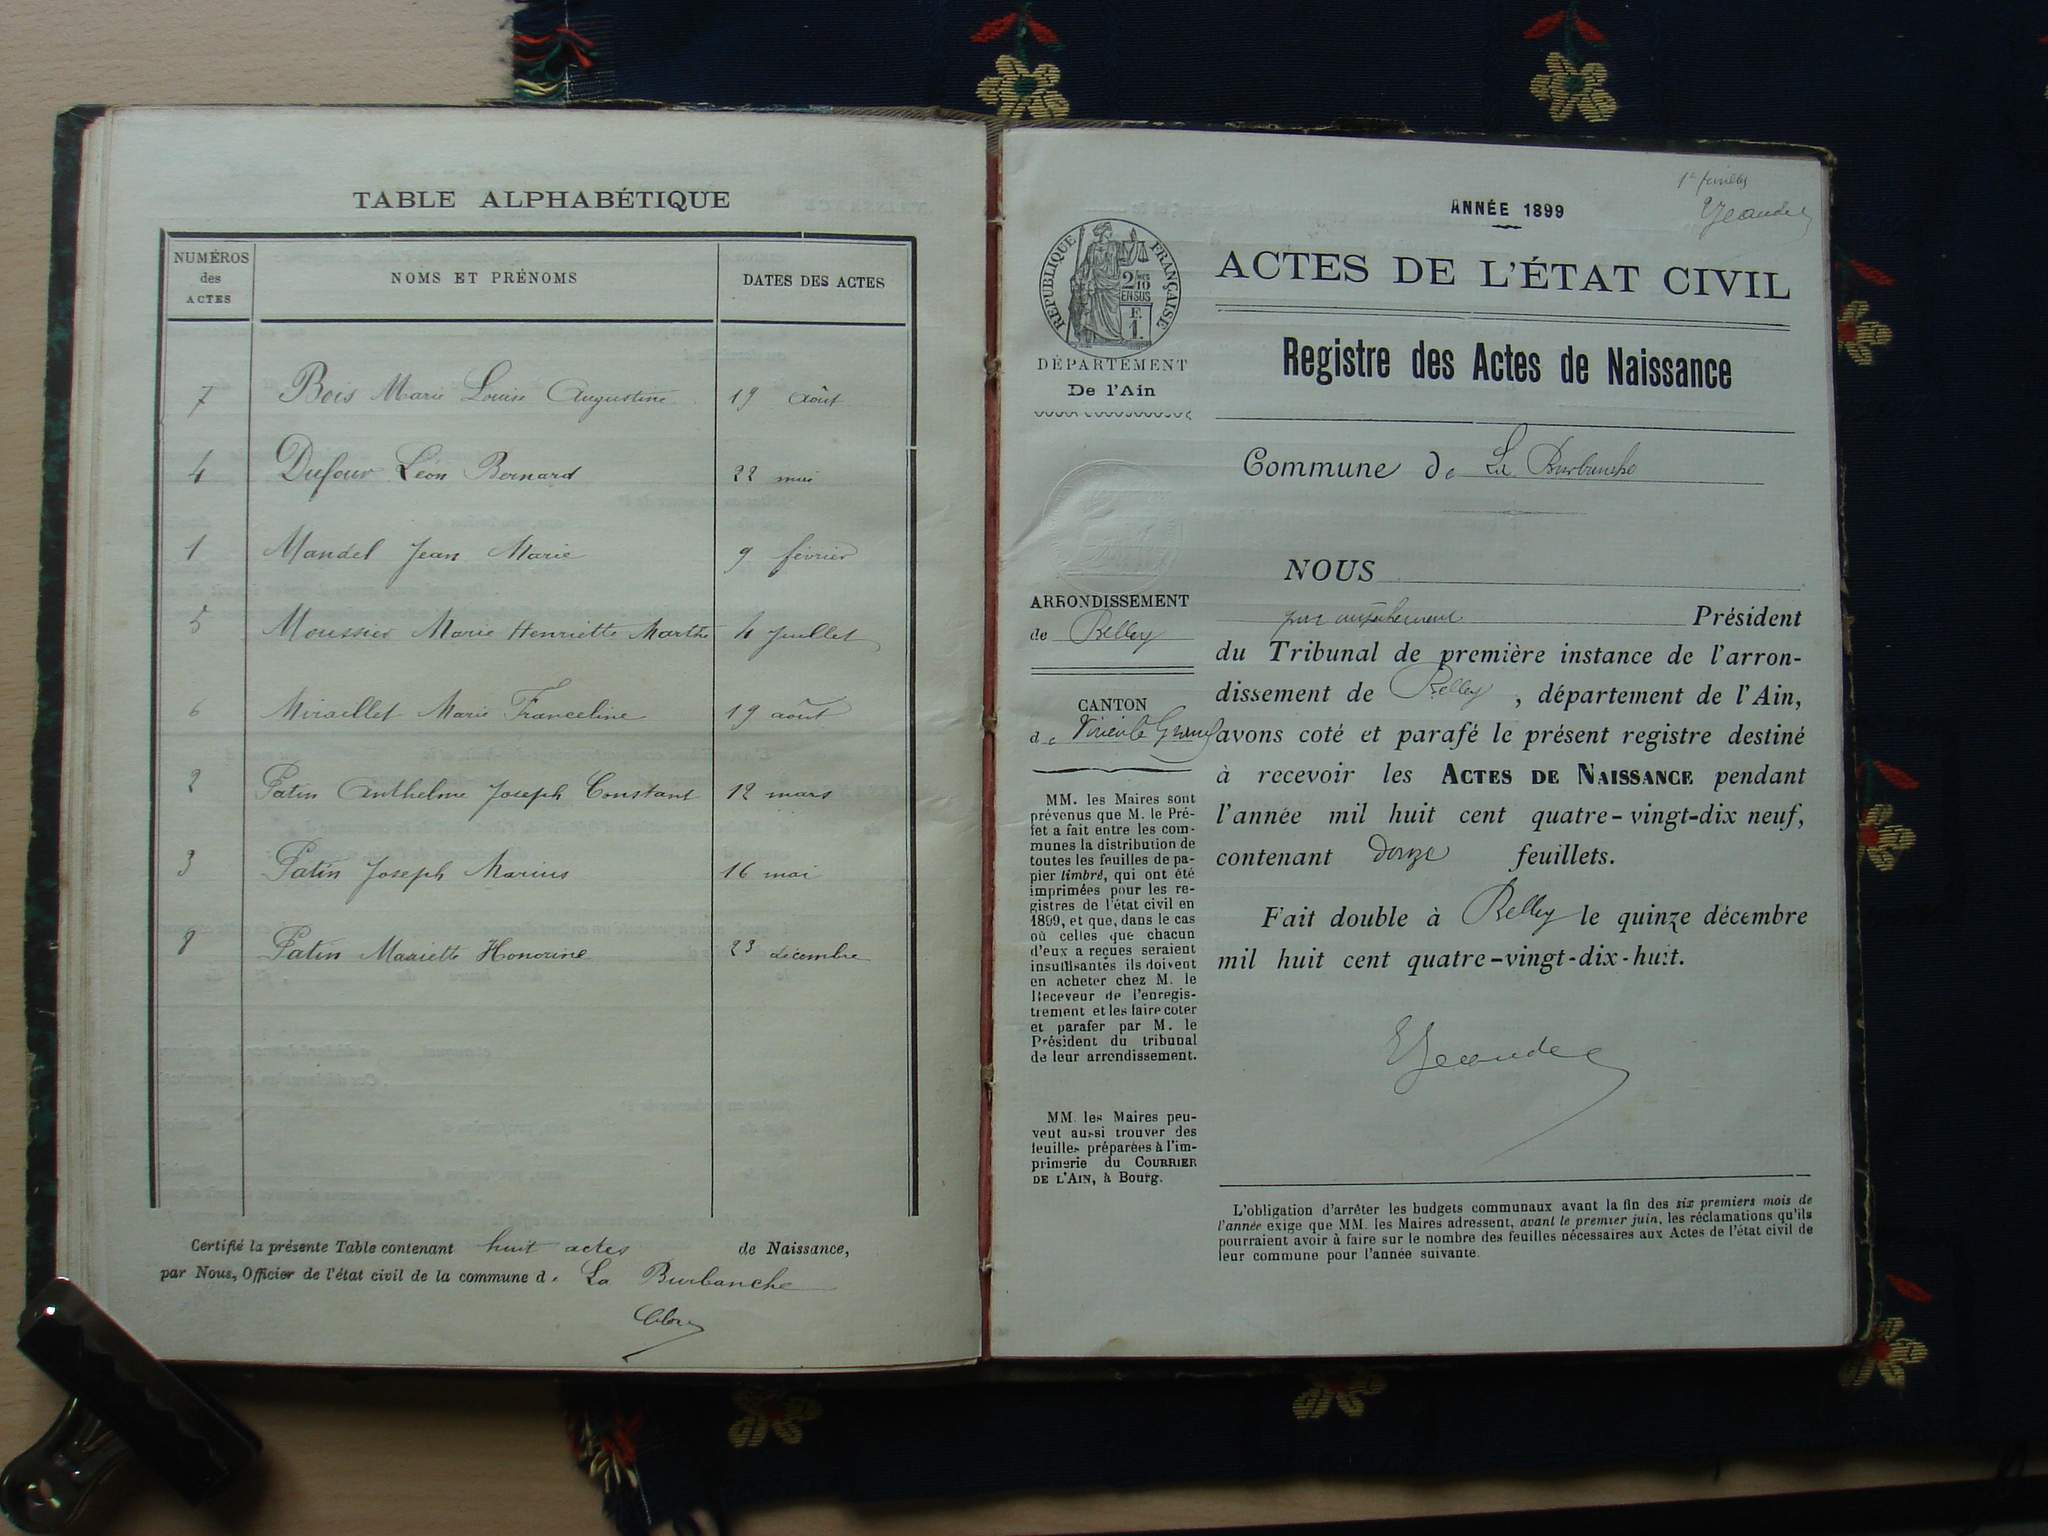 TABLE ALPHABÉTIQUE
NUMÉROS des ACTES
NOMS ET PRÉNOMS
DATES DES ACTES
7 Bois Marie Louise Augustine 19 août
4 Dufour Léon Bernard 22 mai
1 Mandel Jean Marie 9 février
5 Moussier Marie Henriette Marthe 4 Juillet
6 Miraillet Marie Franceline 19 août
2 Patin Anthelme Joseph Constant 12 mars
3 Patin Joseph Marius 16 mai
8 Patin Mariette Honorine 23 décembre
Certifié la présente Table contenant huit actes de Naissance,
par Nous, Officier de l'état civil de la commune d. La Burbanche
ANNÉE 1899
RÉPUBLIQUE FRANÇAISE
2/10
EN SUS
F.
1.
ACTES DE L'ÉTAT CIVIL
DÉPARTEMENT
De l'Ain
Registre des Actes de Naissance
Commune de La Burbanche
ARRONDISSEMENT
de Belley
CANTON
de Virieu le Grand
MM. les Maires sont
prévenus que M. le Pré-
fet a fait entre les com-
munes la distribution de
toutes les feuilles de pa-
pier timbré, qui ont été
imprimées pour les re-
gistres de l'état civil en
1899, et que, dans le cas
où celles que chacun
d'eux a reçues seraient
insuffisantes ils doivent
en acheter chez M. le
Receveur de l'enregis-
trement et les faire coter
et parafer par M. le
Président du tribunal
de leur arrondissement.
MM. les Maires peu-
vent aussi trouver des
feuilles préparées à l'im-
primerie du COURRIER
DE L'AIN, à Bourg.
NOUS
par empêchement Président
du Tribunal de première instance de l'arron-
dissement de Belley, département de l'Ain,
avons coté et parafé le présent registre destiné
à recevoir les ACTES DE NAISSANCE pendant
l'année mil huit cent quatre-vingt-dix neuf,
contenant douze feuillets.
Fait double à Belley le quinze décembre
mil huit cent quatre-vingt-dix-huit.
L'obligation d'arrêter les budgets communaux avant la fin des six premiers mois de
l'année exige que MM. les Maires adressent, avant le premier juin, les réclamations qu'ils
pourraient avoir à faire sur le nombre des feuilles nécessaires aux Actes de l'état civil de
leur commune pour l'année suivante.